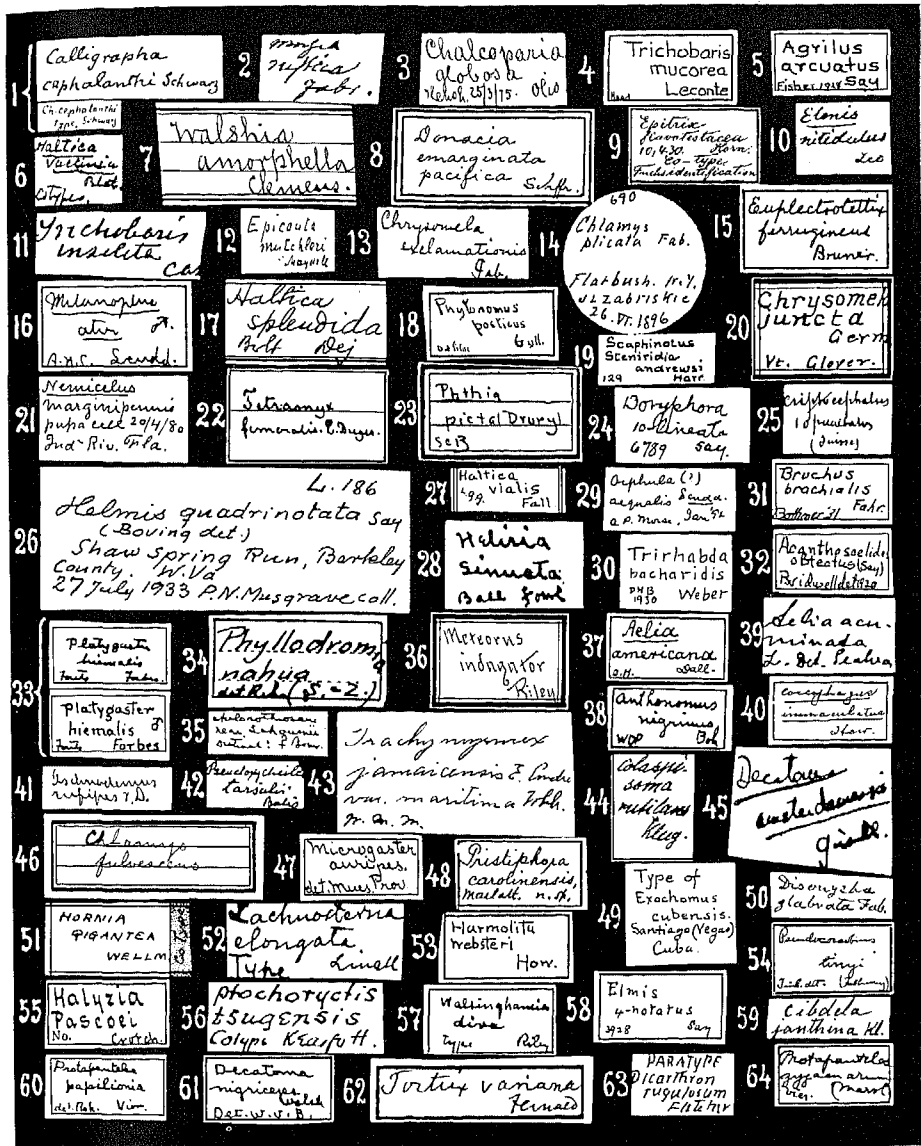 1
Calligrapha
caphalanthi Schwarz
Ch. cephalanthi
Type, Schwarz
2
nigrica
Fabr.
3
Chalcoparia
globosa
25/3/75. Oliv
4
Trichobaris
mucorea
Leconte
5
Agrilus
arcuatus
Fisher 1928 Say
6
Haltica
Blat.
Cotypes,
7
Walshia
amorphella
Clemens.
8
Donacia
emarginata
pacifica Schffr.
9
Epitrix
flavotestacea
10,4.30. Horn.
Co-type
Fuchs identification
10
nitidulus
Lec
11
Trichobaris
insolita
Cas
12
Epicauta
mutchleri
13
Chrysomela
exclamationis
Fab.
14
690
Chlamys
plicata Fab.
Flatbush. N.Y.
J L Zabriskie
26. VI. 1896
15
Euplectrotettix
ferrugineus
Bruner.
16
Melanoplus
ater ♂.
A.N.C. Scudd.
17
Haltica
splendida
Dej
18
Phytonomus
posticus
Gyll.
19
Scaphinotus
Steniridia
andrewsi
129 Harr.
20
Chrysomela
juncta
Germ
Vt. Glover.
21
Nemicelus
marginipennis
pupa cell 20/4/80
Ind- Riv. Fla.
22
Tetraonyx
femoralis. E. Duges.
23
Phthia
picta (Drury)
SCB
24
Doryphora
10-lineata
6789 Say.
25
Criptocephalus
10 punctatus
26
L. 186
Helmis quadrinotata Say
(Boving det.)
Shaw Spring Run, Barkley
County, W.Va
27 July 1933 P.N. Musgrave coll.
27
Haltica
vialis
Fall
28
Heliria
Sinuata
Ball Fowl
29
Orphula (?)
aequalis Scudd.
a.P. Morse, Jan '92
30
Trirhabda
bacharidis
Weber
1930
31
Bruchus
brachialis
Fahr.
32
Acanthoscelides
obtectus (Say)
Bridwell det 1920
33
Platygaster
hiemalis
Forbes
Platygaster
hiemalis ♂
Forbes
34
Phyllodromia
nahua
det Reh (S.-Z.)
35
36
Meteorus
indagator
Riley
37
Aelia
americana
Dall.
38
Anthonomus
nigrinus
WDP Boh
39
Aelia acu-
minada
L. Det.
40
Coccophagus
immaculatus
How.
41
Ischnodemus
rufipes
42
tarsalis
Balis
43
Trachymyrmex
jamaicensis E. Andre
var. maritima Whlr.
W. M. M.
44
Colaspi-
soma
rutilans
Klug.
45
Decatoma
amsterdamensis
Girault.
46
Chlamys
fulvescens
47
Microgaster
auripes,
det. Mues. Prov
48
Pristiphora
carolinensis,
Marlatt. n. sp.
49
Type of
Exochomus
cubensis.
Santiago (Vegas)
Cuba.
50
Disonycha
glabrata Fab.
51
HORNIA
GIGANTEA
WELLM
52
Lachnosterna
elongata.
Type Linell
53
Harmolita
websteri
How.
54
Pseudococcobius
55
Halyzia
Pascoei
No. Crotch.
56
Ptochoryctis
tsugensis
Cotype Kearfott.
57
Walsinghamia
diva
Type Riley
58
Elmis
4-notatus
3928 Say
59
Cibdela
janthina Kl.
60
Protapanteles
papilionis
det. Roh. Vier.
61
Decatoma
nigriceps
Walsh
Det. W.V.B.
62
Tortrix variana
Fernald
63
PARATYPE
Dicarthron
rugulosum
64
Protapantela
hyg